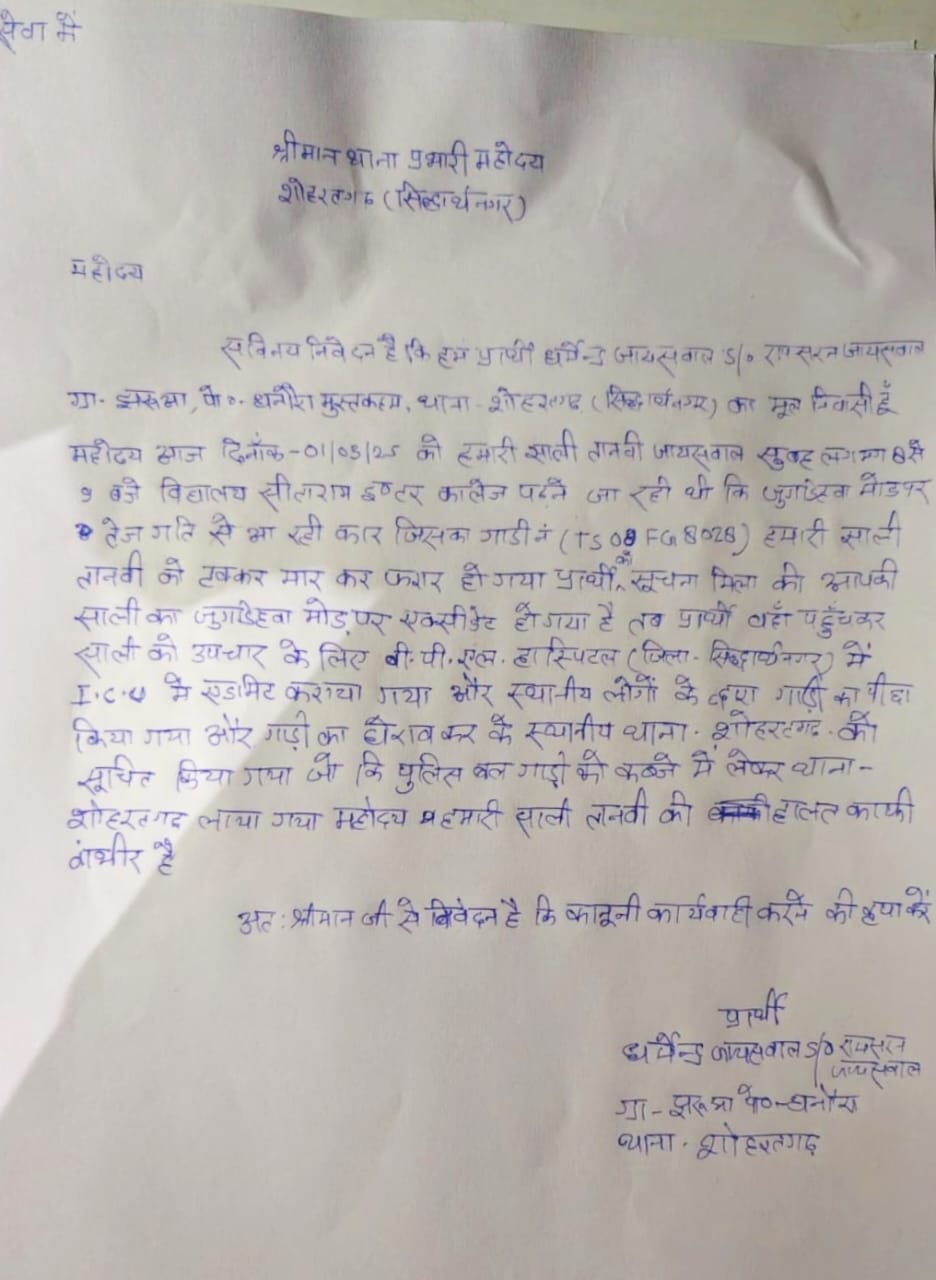 सेवा में
श्रीमान थाना प्रभारी महोदय
शोहरतगढ़ (सिद्धार्थनगर)
महोदय
सविनय निवेदन है कि हम प्रार्थी धर्मेन्द्र जायसवाल S/o रामसरन जायसवाल
ग्रा- झरूआ, पो०- धनौरा मुस्तकहम, थाना- शोहरतगढ़ (सिद्धार्थनगर) का मूल निवासी हूँ
महोदय आज दिनाँक-01/05/25 को हमारी साली तानवी जायसवाल सुबह लगभग 8 से
9 बजे विद्यालय सीताराम इण्टर कालेज पढ़ने जा रही थी कि जुगडिहवा मोड पर
तेज गति से आ रही कार जिसका गाडी नं (TS08 FG 8028) हमारी साली
तानवी को टक्कर मार कर फरार हो गया प्रार्थी को सूचना मिला की आपकी
साली का जुगडिहवा मोड़ पर एक्सीडेंट हो गया है तब प्रार्थी वहाँ पहुँचकर
साली को उपचार के लिए वी.पी.एल. हास्पिटल (जिला- सिद्धार्थनगर) में
I.C.U में एडमिट कराया गया और स्थानीय लोगों के द्वारा गाड़ी का पीछा
किया गया और गाड़ी का घेराव कर के स्थानीय थाना- शोहरतगढ़ को
सूचित किया गया जो कि पुलिस बल गाड़ी को कब्जे में लेकर थाना-
शोहरतगढ़ लाया गया महोदय हमारी साली तानवी की हालत काफी
गंभीर है
अतः श्रीमान जी से निवेदन है कि कानूनी कार्यवाही करने की कृपा करें
प्रार्थी
धर्मेन्द्र जायसवाल S/o रामसरन
जायसवाल
ग्रा- झरूआ पो०-धनौरा
थाना- शोहरतगढ़